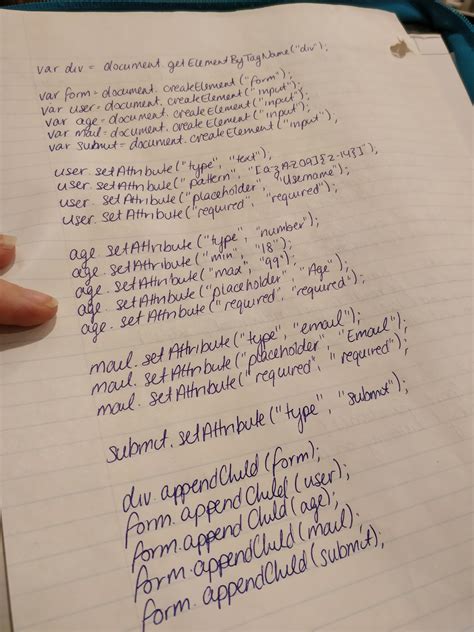 var div = document.getElementByTagName("div");
var form = document.createElement("form");
var user = document.createElement("input");
var age = document.createElement("input");
var mail = document.createElement("input");
var submit = document.createElement("input");
user.setAttribute("type", "text");
user.setAttribute("pattern", "[a-zA-Z0-9]{2-14}");
user.setAttribute("placeholder", "Username");
user.setAttribute("required", "required");
age.setAttribute("type", "number");
age.setAttribute("min", "18");
age.setAttribute("max", "99");
age.setAttribute("placeholder", "Age");
age.setAttribute("required", "required");
mail.setAttribute("type", "email");
mail.setAttribute("placeholder", "Email");
mail.setAttribute("required", "required");
submit.setAttribute("type", "submit");
div.appendChild(form);
form.appendChild(user);
form.appendChild(age);
form.appendChild(mail);
form.appendChild(submit);